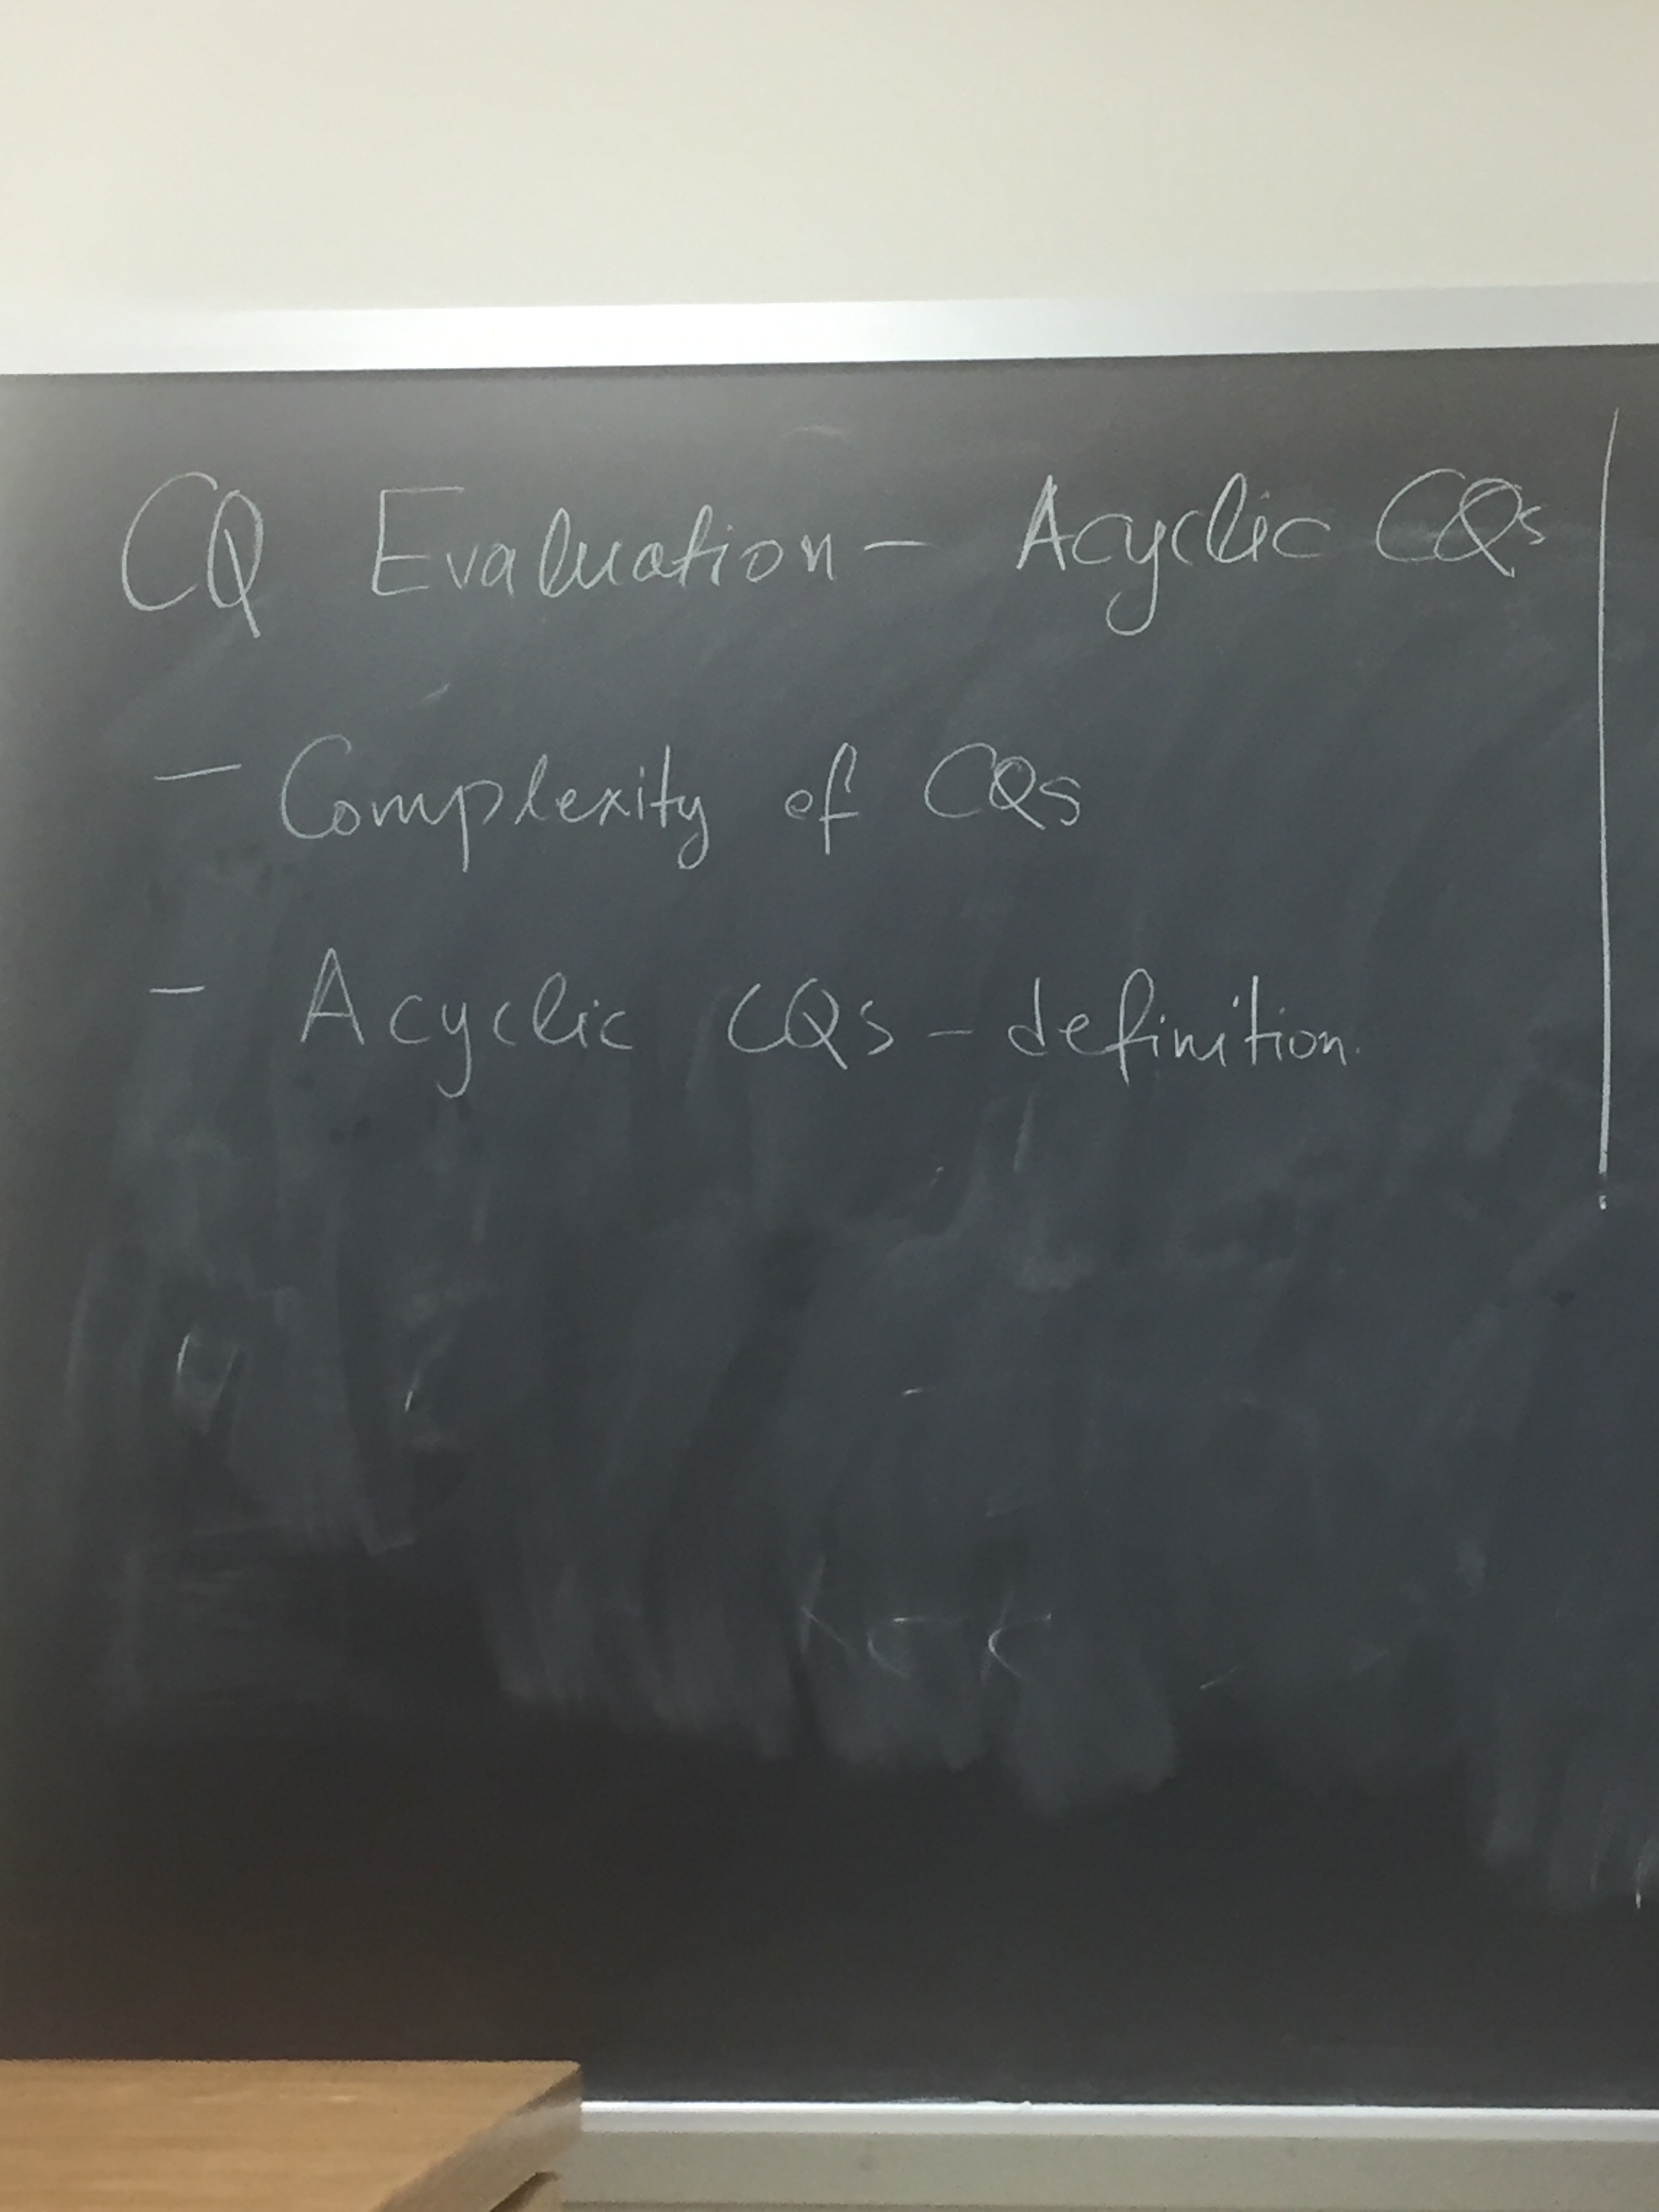 CQ Evaluation - Acyclic CQs
- Complexity of CQs
- Acyclic CQs - definition.